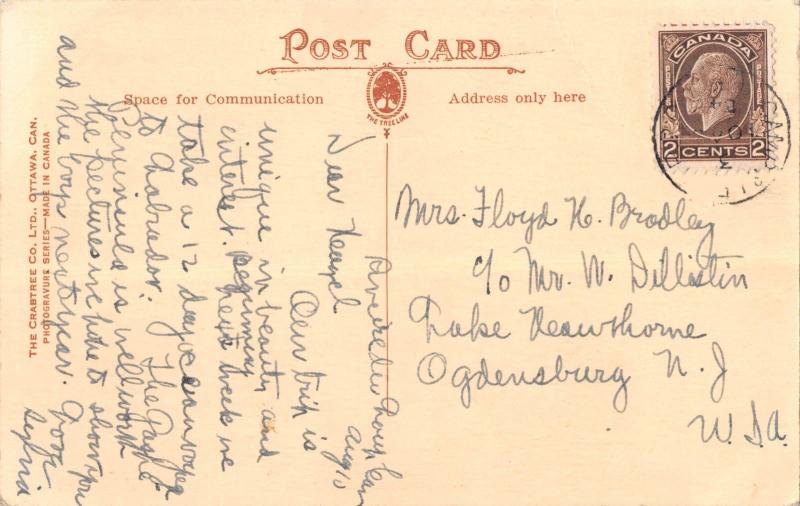 POST CARD
Space for Communication
Address only here
THE TREE LINE
CANADA
POSTES
POSTAGE
2 CENTS 2
THE CRABTREE CO. LTD., OTTAWA, CAN.
PHOTOGRAVURE SERIES—MADE IN CANADA
Aug 10
Dear
Our trip is
unique in beauty and
interest. Beginning
next week we
take a 12 day
to Labrador. The Gaspe
Peninsula is well worth
the pictures to show you
and the boys next year. Love
Sylvia
Mrs. Floyd H. Bradley
c/o Mr. W. Dillistin
Lake Heawthorne
Ogdensburg N. J
U.S.A.